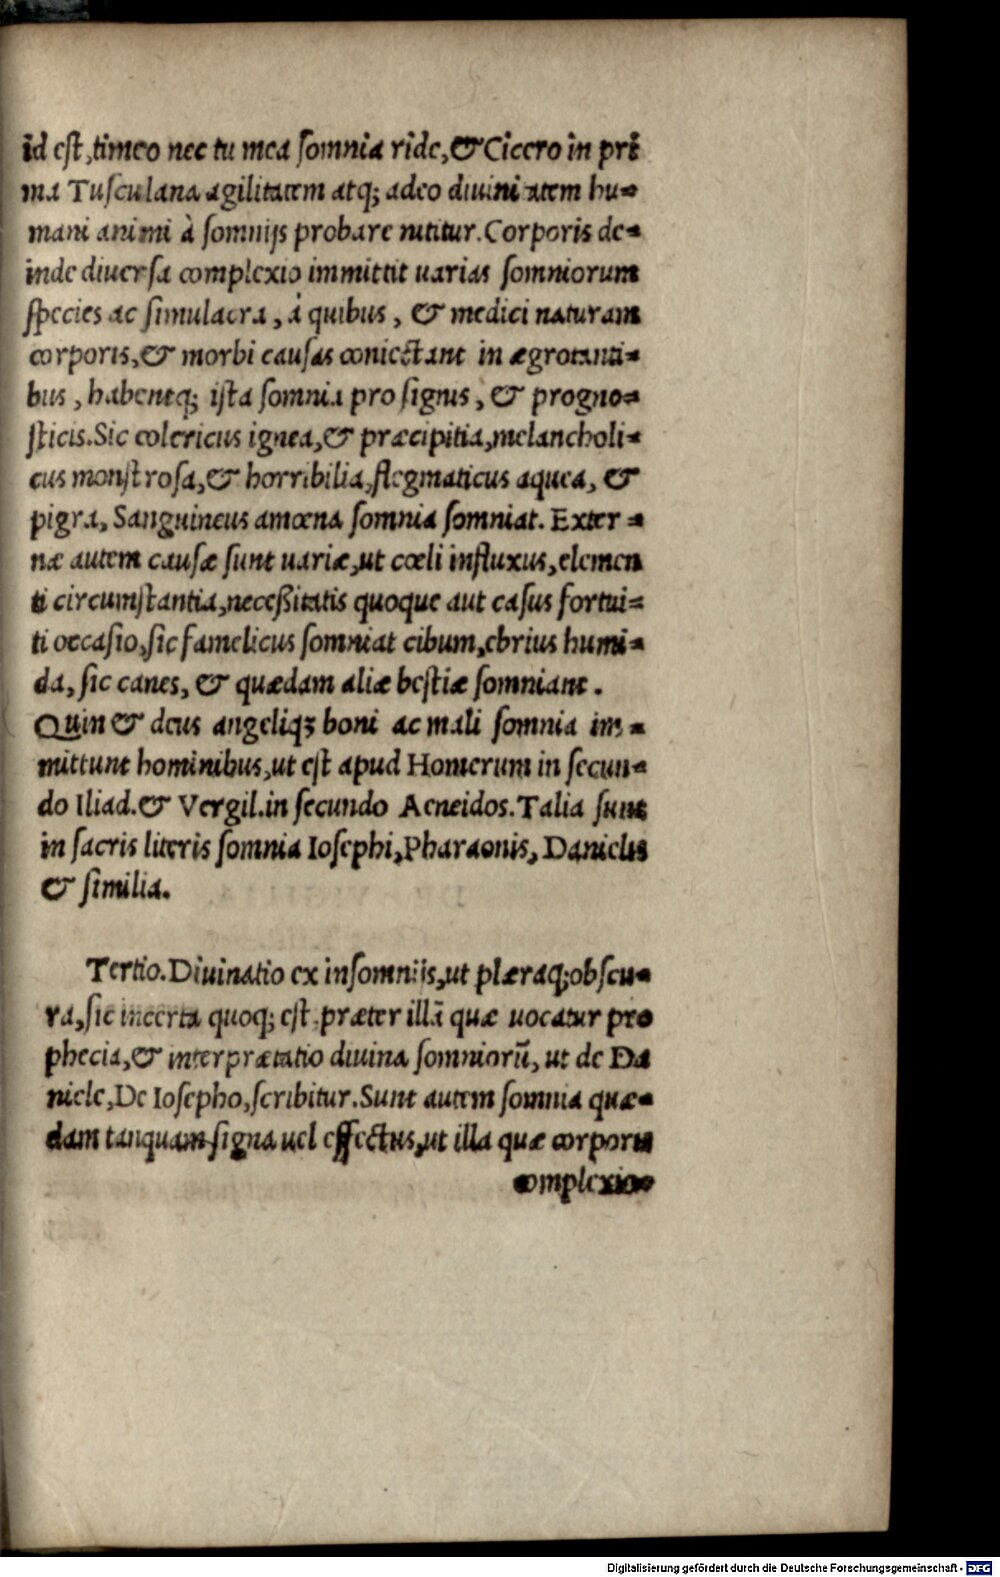 id eſt, timeo nec tu mea ſomnia ride, & Cicero in pri
ma Tuſculana agilitatem atq; adeo diuinitatem hu-
mani animi à ſomnijs probare nititur. Corporis de-
inde diuerſa complexio immittit uarias ſomniorum
ſpecies ac ſimulacra, à quibus, & medici naturam
corporis, & morbi cauſas coniectant in ægrotanti-
bus, habentq; iſta ſomnia pro ſignis, & progno-
ſticis. Sic colericus ignea, & præcipitia, melancholi-
cus monſtroſa, & horribilia, flegmaticus aquea, &
pigra, Sanguineus amœna ſomnia ſomniat. Exter-
næ autem cauſæ ſunt uariæ, ut cœli influxus, elemen
ti circumſtantia, neceßitatis quoque aut caſus fortui-
ti occaſio, ſic famelicus ſomniat cibum, ebrius humi-
da, ſic canes, & quædam aliæ beſtiæ ſomniant.
Quin & deus angeliqꝫ boni ac mali ſomnia im-
mittunt hominibus, ut eſt apud Homerum in ſecun-
do Iliad. & Vergil. in ſecundo Aeneidos. Talia ſunt
in ſacris literis ſomnia Ioſephi, Pharaonis, Danielis
& ſimilia.
Tertio. Diuinatio ex inſomnijs, ut plæraq; obſcu-
ra, ſic incerta quoq; eſt præter illā quæ uocatur pro
phecia, & interprætatio diuina ſomniorū, ut de Da
niele, De Ioſepho, ſcribitur. Sunt autem ſomnia quæ-
dam tanquam ſigna uel effectus, ut illa quæ corporis
complexio-
Digitalisierung gefördert durch die Deutsche Forschungsgemeinschaft - DFG